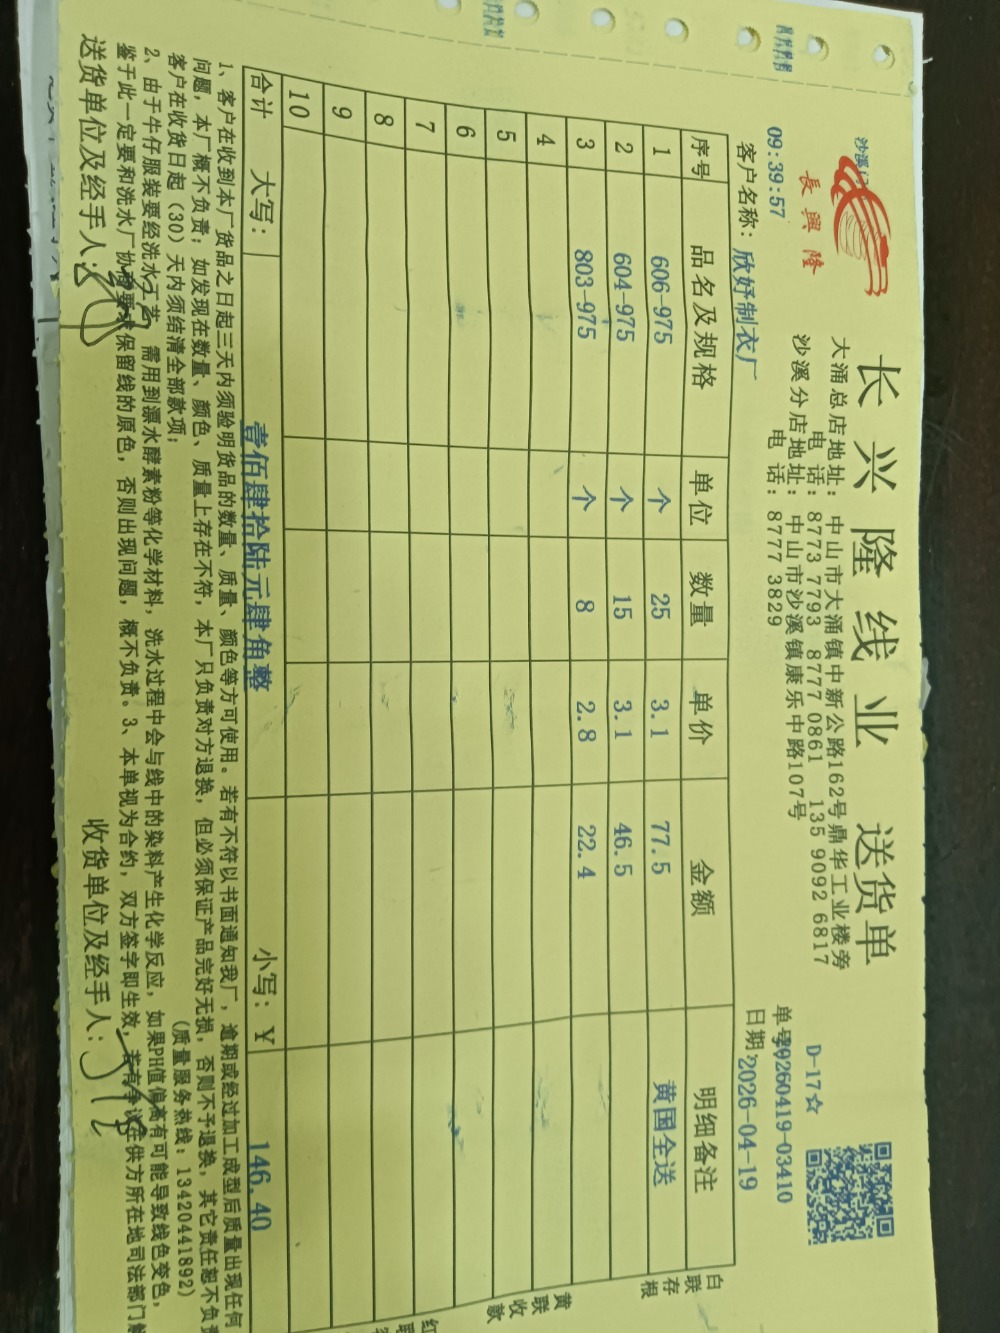 長興隆
长兴隆线业 送货单
大涌总店地址：中山市大涌镇中新公路162号鼎华工业楼旁
电 话：8773 7793 8777 0861 135 9092 6817
沙溪分店地址：中山市沙溪镇康乐中路107号
电 话：8777 3829
D-17☆
09:39:57
单号:20260419-03410
客户名称：欣妤制衣厂
日期:2026-04-19
序号 品名及规格 单位 数量 单价 金额 明细备注
1 606-975 个 25 3.1 77.5 黄国全送
2 604-975 个 15 3.1 46.5
3 803-975 个 8 2.8 22.4
4
5
6
7
8
9
10
合计 大写： 壹佰肆拾陆元肆角整 小写：￥ 146.40
白联存根
黄联收款
1、客户在收到本厂货品之日起三天内须验明货品的数量、质量、颜色等方可使用。若有不符以书面通知我厂，逾期或经过加工成型后质量出现任何
问题，本厂概不负责；如发现在数量、颜色、质量上存在不符，本厂只负责对方退换，但必须保证产品完好无损，否则不予退换，其它责任恕不负责
客户在收货日起（30）天内须结清全部款项；
(质量服务热线：13420441892)
2、由于牛仔服装要经洗水工艺，需用到漂水酵素粉等化学材料，洗水过程中会与线中的染料产生化学反应，如果PH值偏高有可能导致线色变色，
鉴于此一定要和洗水厂协商要求保留线的原色，否则出现问题，概不负责。3、本单视为合约，双方签字即生效，若有争议在供方所在地司法部门解
送货单位及经手人：
收货单位及经手人：